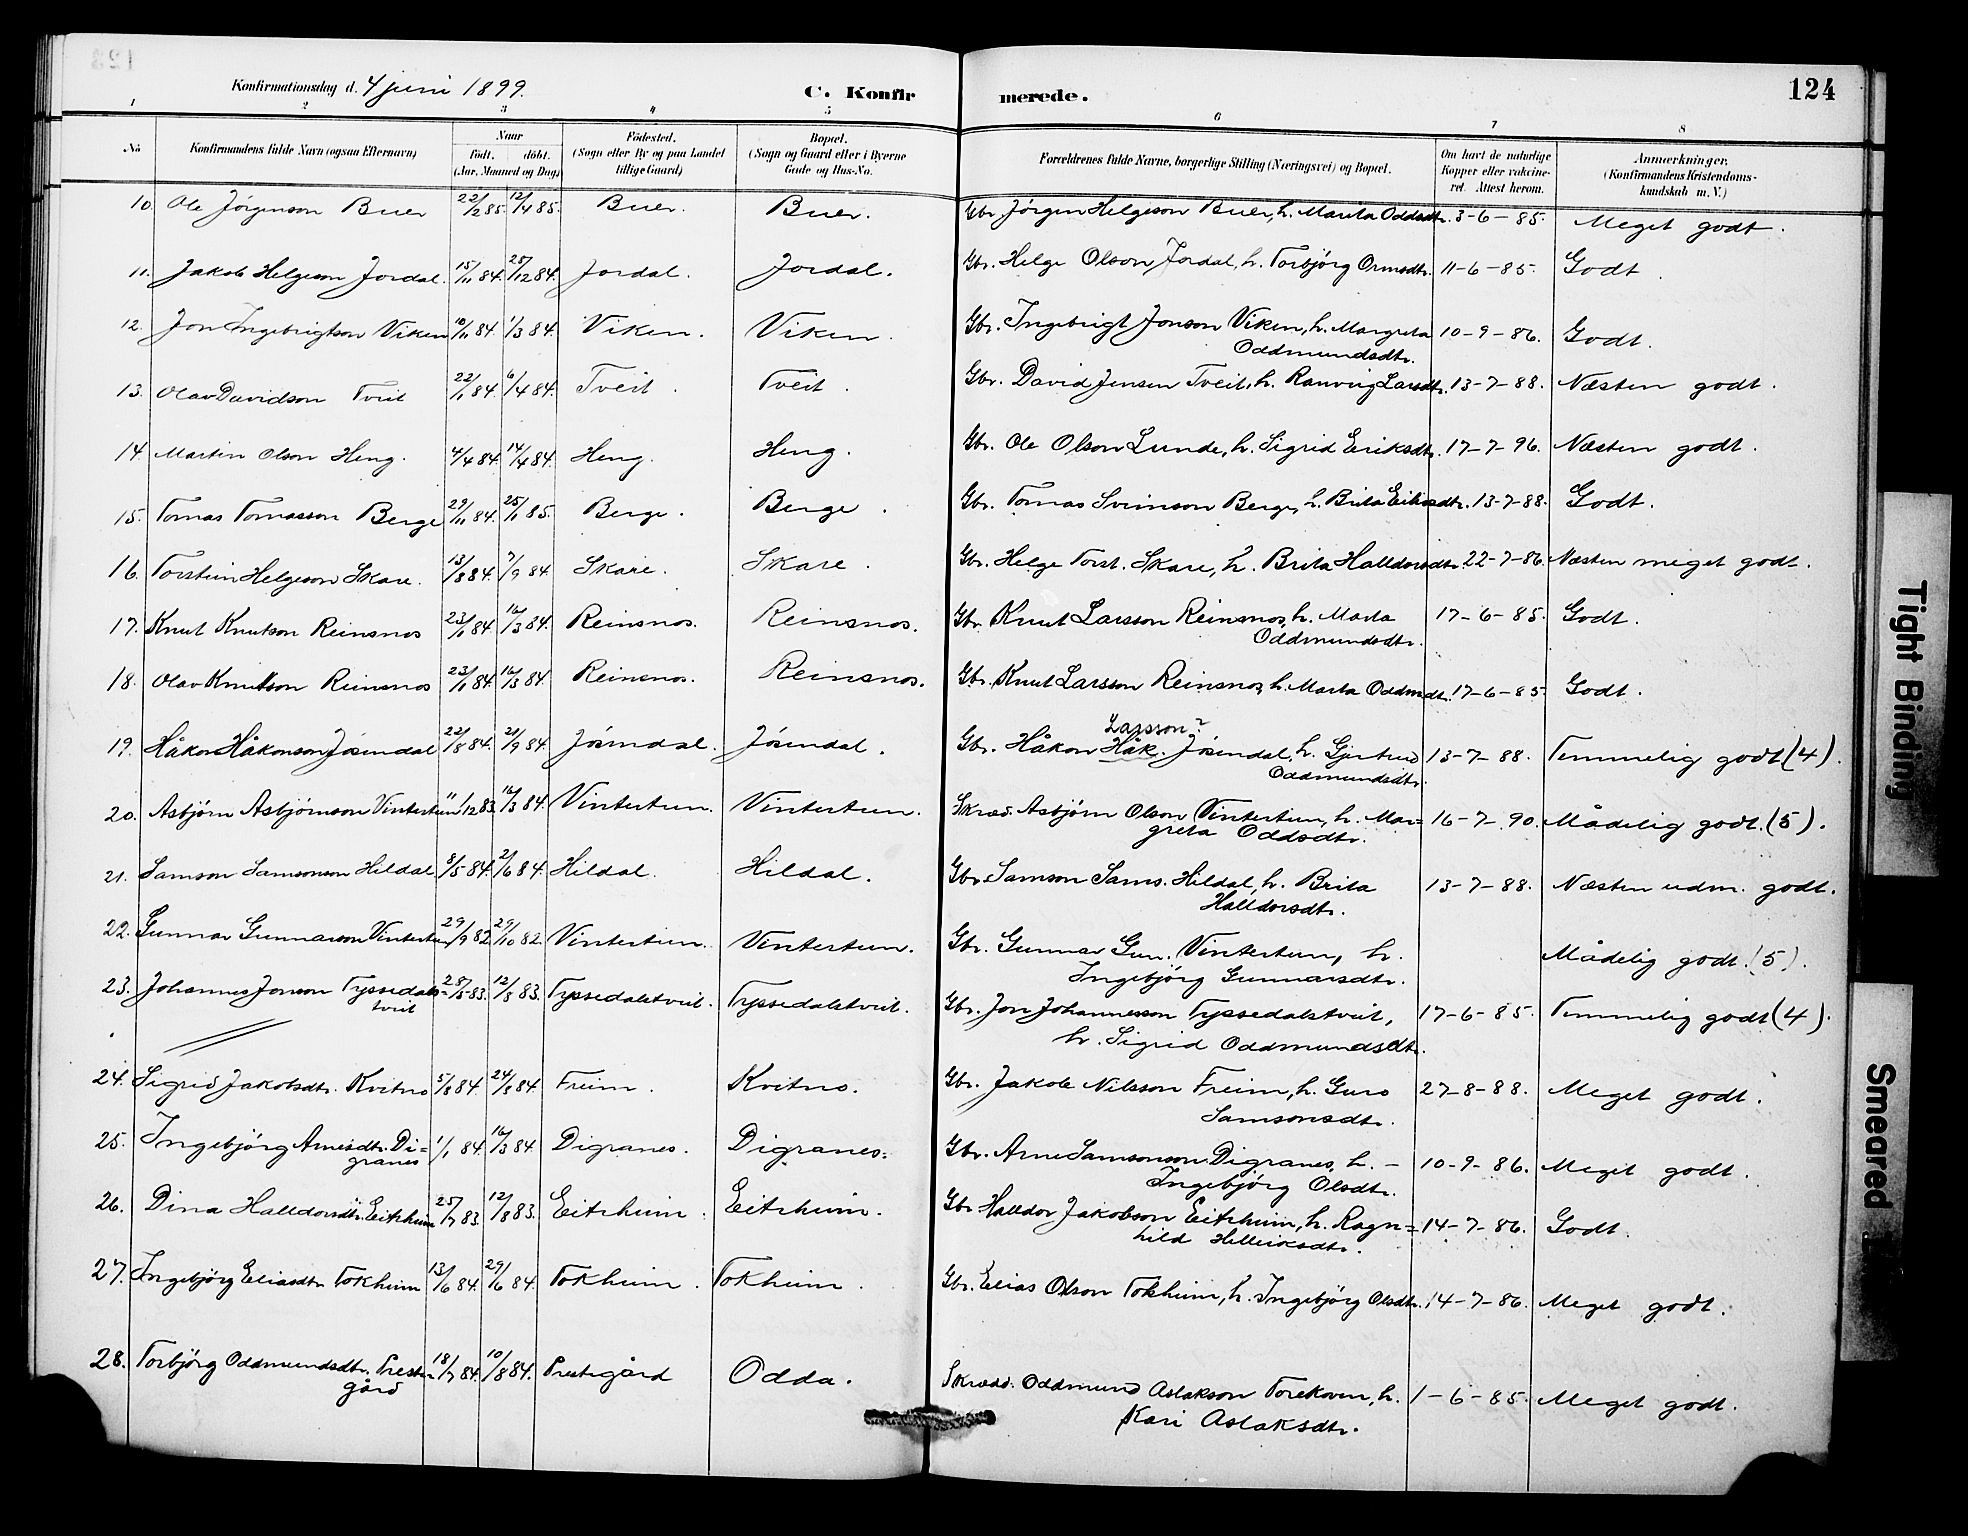 124
Konfirmationsdag d. 4 juni 1899.
C. Konfirmerede.
1 2 3 4 5 6 7 8
No Konfirmandens fulde Navn (ogsaa Efternavn) Naar Född. döbt. (Aar, Maaned og Dag) Födested. (Sogn eller By og paa Landet tillige Gaard) Bopæl. (Sogn og Gaard eller i Byerne Gade og Hus-No. Forældrenes fulde Navne, borgerlige Stilling (Næringsvei) og Bopæl. Om havt de naturlige Kopper eller vaccineret. Attest herom. Anmærkninger. (Konfirmandens Kristendomskundskab m. V.)
10. Ole Jörgenson Buer 22/2 85. 12/4 85. Buer. Buer. Gbr. Jörgen Helgeson Buer, h. Marita Oddsdtr. 3-6-85. Meget godt.
11. Jakob Helgeson Jordal. 15/11 84. 25/12 84. Jordal. Jordal. Gbr. Helge Olson Jordal, h. Torbjörg Ormsdtr. 11-6-85. Godt.
12. Jon Ingebrigtson Viken 10/11 84. 1/3 84. Viken. Viken. Gbr. Ingebrigt Jonson Viken, h. Margreta 10-9-86. Godt.
Oddmundsdtr.
13. Olav Davidson Tveit 22/1 84. 6/4 84. Tveit. Tveit. Gbr. David Jensen Tveit, h. Ranveig Larsdtr. 13-7-88. Næsten godt.
14. Martin Olson Heng. 4/4 84. 14/4 84. Heng. Heng. Gbr. Ole Olson Lunde, h. Sigrid Eriksdtr. 17-7-96. Næsten godt.
15. Tomas Tomasson Berge 29/11 84. 25/1 85. Berge. Berge. Gbr. Tomas Sveinson Berge, h. Brita Eiriksdtr. 13-7-88. Godt.
16. Torstein Helgeson Skare. 13/8 84. 7/9 84. Skare. Skare. Gbr. Helge Torst. Skare, h. Brita Halldorsdtr. 22-7-86. Næsten meget godt.
17. Knut Knutson Reinsnos 23/1 84. 16/3 84. Reinsnos. Reinsnos. Gbr. Knut Larsson Reinsnos, h. Marta 17-6-85. Godt.
Oddmundsdtr.
18. Olav Knutson Reinsnos 23/1 84. 16/3 84. Reinsnos. Reinsnos. Gbr. Knut Larsson Reinsnos, h. Marta Oddmdtr. 17-6-85. Godt.
Larsson?
19. Håkon Håkonson Jösendal 22/8 84. 21/9 84. Jösendal. Jösendal. Gbr. Håkon Håk. Jösendal, h. Gjertrud 13-7-88. Temmelig godt (4).
Oddmundsdtr.
20. Asbjörn Asbjörnson Vintertun 11/12 83. 16/3 84. Vintertun. Vintertun. Skræd. Asbjörn Olson Vintertun, h. Mar= 16-7-90. Mådelig godt. (5).
greta Oddsdtr.
21. Samson Samsonson Hildal. 8/5 84. 2/6 84. Hildal. Hildal. Gbr. Samson Sams. Hildal, h. Brita 13-7-88. Næsten udm. godt.
Halldorsdtr.
22. Gunnar Gunnarson Vintertun 29/9 82. 29/10 82. Vintertun. Vintertun. Gbr. Gunnar Gun. Vintertun, h. Mådelig godt. (5).
Ingebjörg Gunnarsdtr.
23. Johannes Jonson Tyssedals= 28/5 83. 12/8 83. Tyssedalstveit. Tyssedalstveit. Gbr. Jon Johannesson Tyssedalstveit, 17-6-85. Temmelig godt (4).
tveit
h. Sigrid Oddmundsdtr.
24. Sigrid Jakobsdtr. Kvitno 5/8 84. 24/8 84. Freim. Kvitno. Gbr. Jakob Nilsson Freim, h. Guro 27-8-88. Meget godt.
Samsonsdtr.
25. Ingebjörg Arnesdtr. Di= 1/1 84. 16/3 84. Digranes. Digranes. Gbr. Arne Samsonson Digranes, h. - 10-9-86. Meget godt.
granes
Ingebjörg Olsdtr.
26. Dina Halldorsdtr. Eitrheim 25/7 83. 12/8 83. Eitrheim. Eitrheim. Gbr. Halldor Jakobson Eitrheim, h. Ragn= 14-7-86. Godt.
hild Helleiksdtr.
27. Ingebjörg Eliasdtr. Tokheim 13/6 84. 29/6 84. Tokheim. Tokheim. Gbr. Elias Olson Tokheim, h. Ingebjörg Olsdtr. 14-7-86. Meget godt.
28. Torbjörg Oddmundsdtr. Preste= 18/7 84. 10/8 84. Prestegård Odda. Skrædd. Oddmund Aslakson Torekoven, h. 1-6-85. Meget godt.
gård
Kari Aslaksdtr.
Tight Binding
Smeared